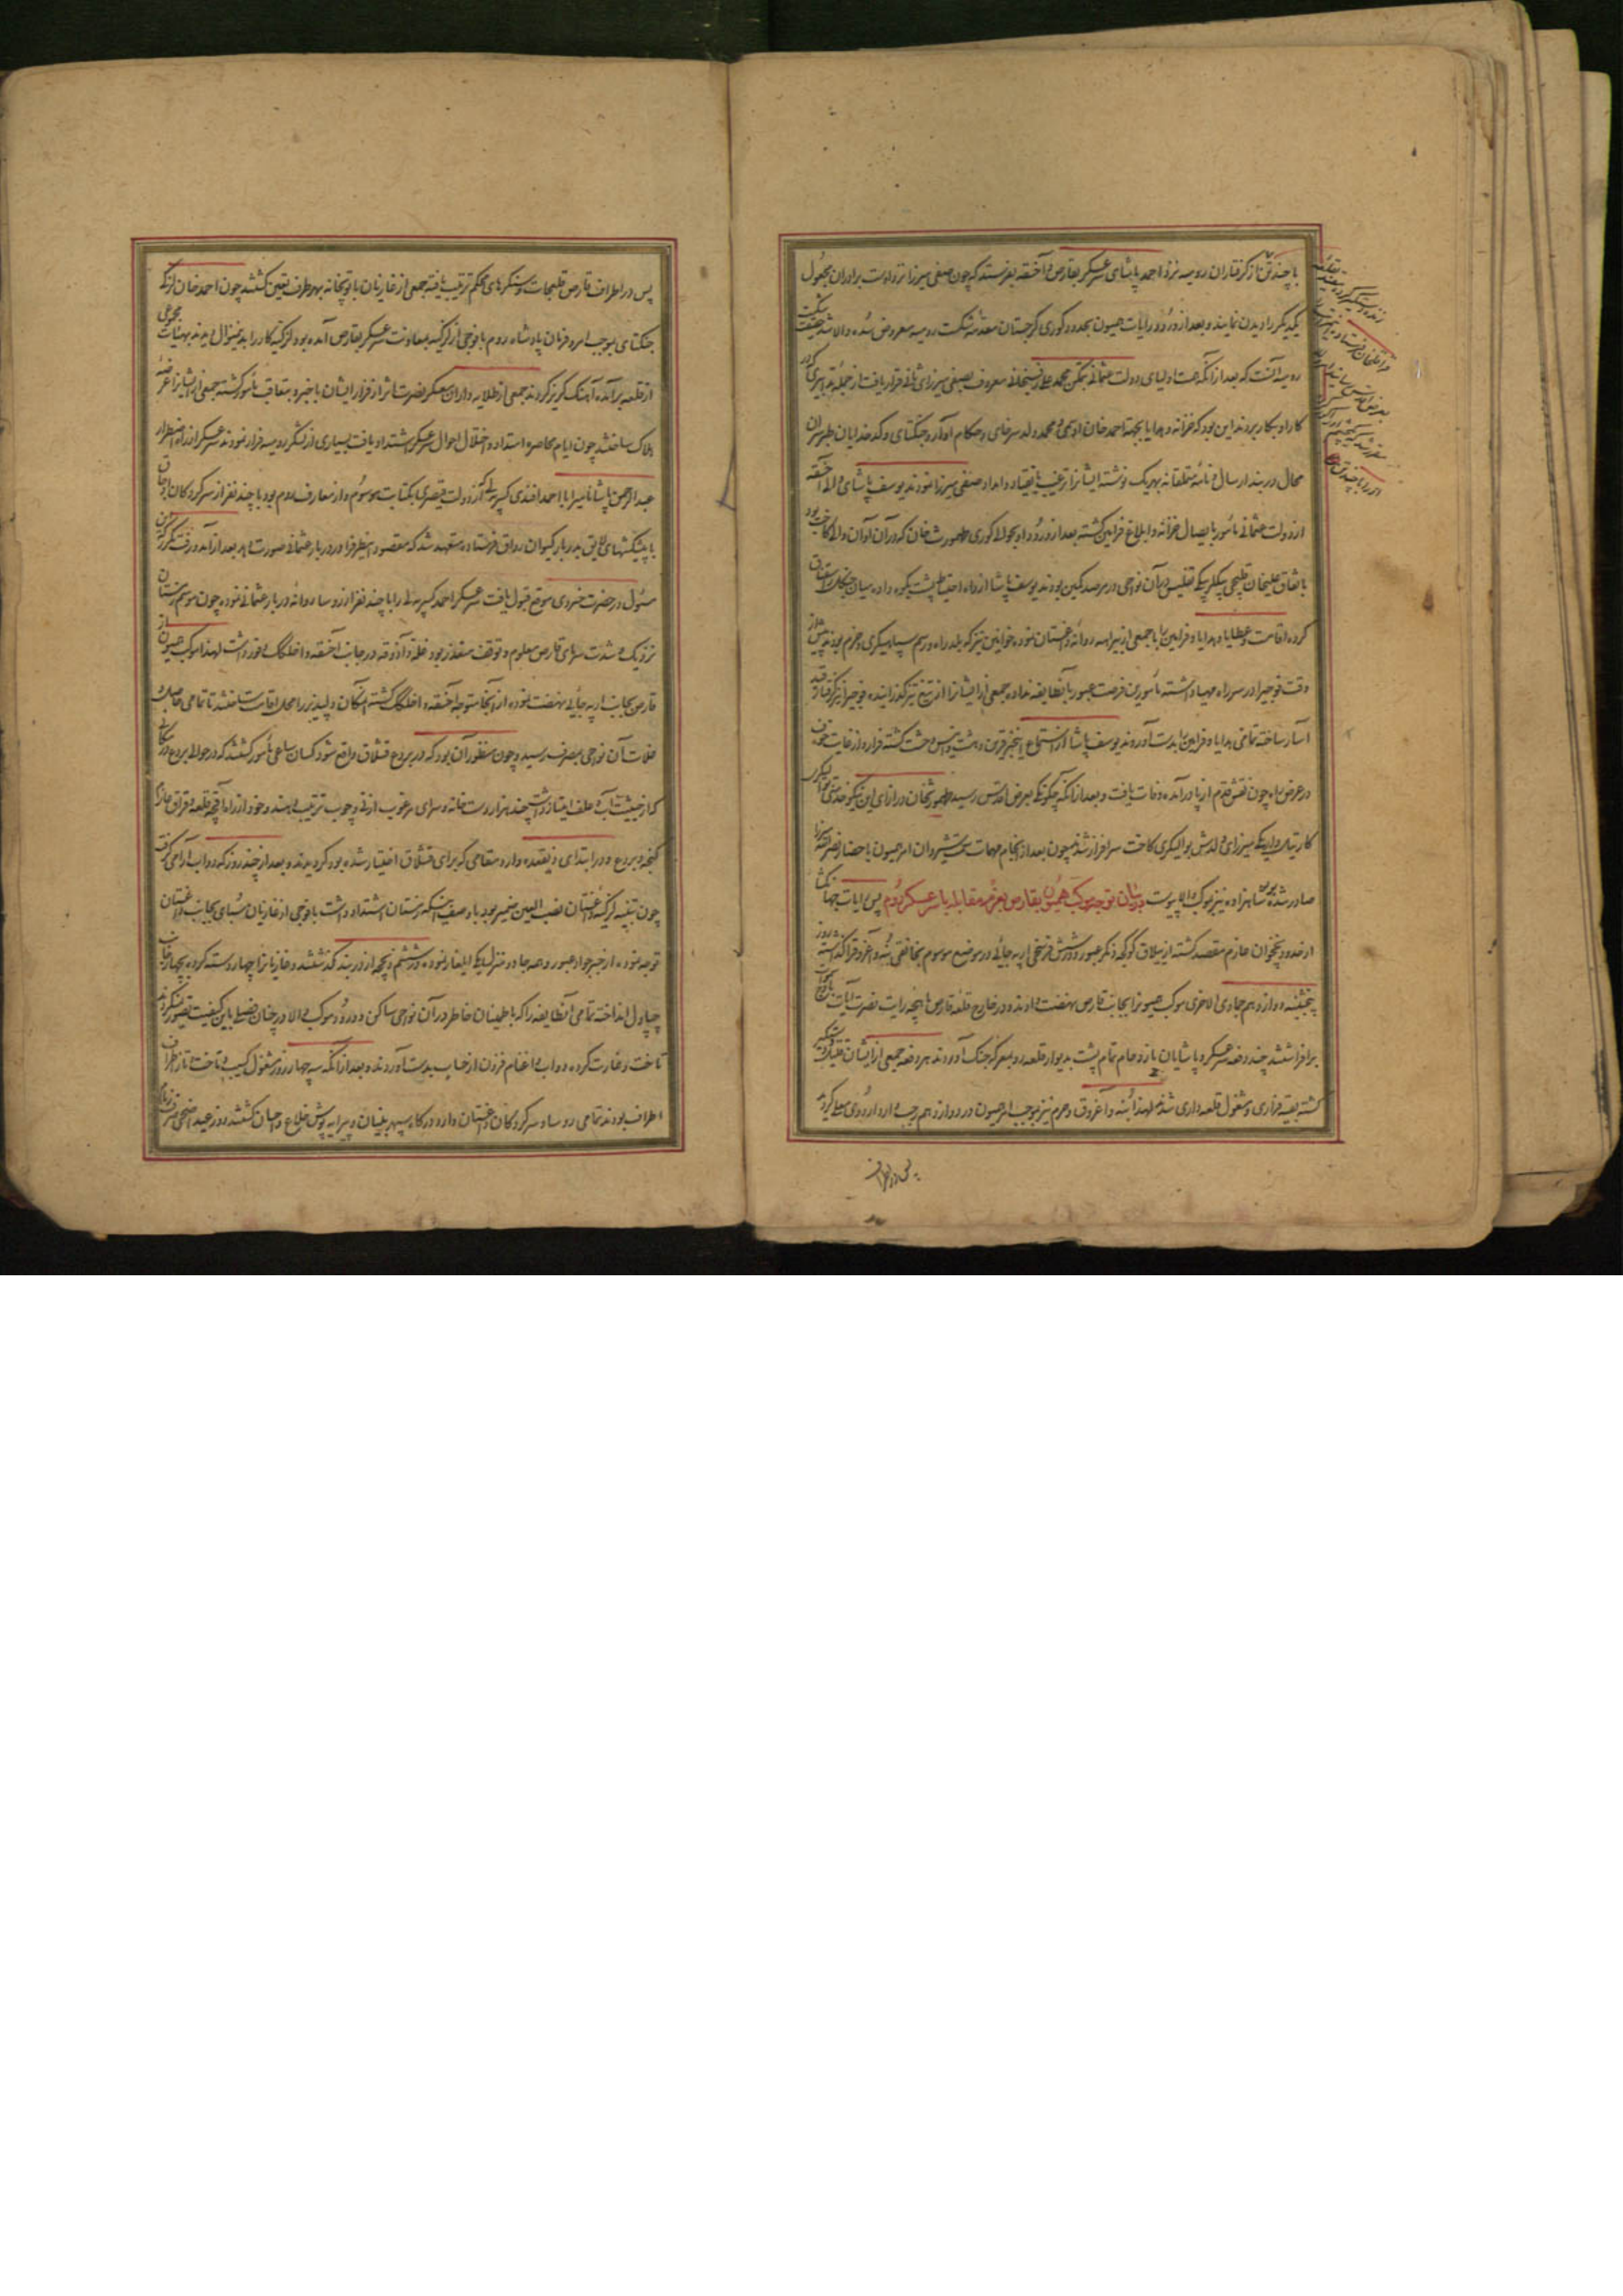 با چند تن از گرفتاران رومیه نزد احمد پاشای سرعسکر بقارص و آخسقه بفرستد که چون صفی میرزا نزد اوست برادران مجهول
یکدیگر را دیدن نمایند و بعد از ورود رایات همیون بحدود کوری گرجستان مقدمه شکست رومیه معروض شده
رومیه آنست که بعد از آنکه همت اولیای دولت عثمانی بتمکن محمد علی رفسنجانی معروف بصفی میرزای ثانی قرار یافت از جمله تدابیری که در
کار او بکار بردند این بود که خزانه و هدایا بجهة احمد خان اوسمی و محمد ولد سرخای و حکام آوار و جنکتای و کدخدایان طبرسران
محال دربند ارسال و نامه متملقانه بهریک نوشته ایشانرا ترغیب بانقیاد و امداد صفی میرزا نمودند یوسف پاشای والی آخسقه
از دولت عثمانی مأمور بایصال خزانه و ابلاغ فرامین گشته بعد از ورود او بحوالی کوری طهمورث خان که در آن اوان والی کاخت بود
باتفاق علیخان قلیجی بیکلربیکی تفلیس در آن نواحی در مرصد کمین بودند یوسف پاشا از راه احتیاط پشت بکوه داده میان جنکل
کرده اقامت و عطایا و هدایا و فرامین را با جمعی از ینیرامه روانه داغستان نموده خوانین نیز که بلد راه و رسم سپاهیگری و حزم بودند پیش از
وقت فوجی را در سر راه مهیا داشته مأمورین فرصت عبور بآنطایفه نداده جمعی از ایشانرا از تیغ تیز گذرانیده فوجی را نیز گرفتار قید
آسار ساخته تمامی هدایا و فرامین را بدست آوردند یوسف پاشا از استماع اینخبر قرین دهشت و انیس وحشت گشته فرار و از غایت خوف
در عرض راه چون نقش قدم از پا درآمده وفات یافت و بعد از آنکه چگونگی بعرض اقدس رسید طهمورثخان در ازای این نیکو خدمتی
کارتیل و ایرکلی میرزای ولدش بوالیگری کاخت سرافراز شد و چون بعد از انجام مهمات سمت شیروان امر همیون باحضار نصرالله میرزا
صادر شده بود شاهزاده نیز بموکب والا پیوست در بیان توجه موکب همیون بقارص بعزم مقابله با سرعسکر روم پس رایات جهانگشا
از حدود نخجوان عازم مقصد گشته از ییلاق کوکچه دنکز عبور و در شش فرسخی ارپه چائی در موضع موسوم بخانقی بنه و آغروق را گذاشته
پنجشنبه دوازدهم جمادی الاخری موکب همیونرا بجانب قارص نهضت دادند و در خارج قلعه قارص ماهچه رایت نصرت آیات
برافراشتند چند دفعه سرعسکر و پاشایان با ازدحام تمام پشت بدیوار قلعه رو بمعرکه جنگ آوردند هر دفعه جمعی از ایشان قتیل و دستگیر
گشته بقیه فراری و مشغول قلعه‌داری شدند لهذا بنه و آغروق و حرم نیز بموجب امر همیون در دوازدهم رجب وارد اردوی معلی گردید
پس در اطراف
پس در اطراف قارص قلعجات و سنگرهای محکم ترتیب یافته جمعی از غازیان با توپخانه بهر طرف تعیین گشتند چون احمد خان لزگی
جنکتای بموجب امر و فرمان پادشاه روم با فوجی از لزگیه بمعاونت سرعسکر بقارص آمده بود لزگیه کار را بدینمنوال دیدند بهیئات مجموعی
از قلعه برآمده آهنگ گریز کردند جمعی از طلایه داران معسکر نصرت اثر از فرار ایشان باخبر و بتعاقب مأمور گشته جمعی از ایشانرا عرضه
هلاک ساختند چون ایام محاصره امتداد و اختلال احوال سرعسکر اشتداد یافت بسیاری از لشکر رومیه فرار نمودند سرعسکر از راه اضطرار
عبد الرحمن پاشا نامیرا با احمد افندی کسریه لی که از دولت قیصری بکتابت موسوم و از معارف روم بود با چند نفر از سرکردگان اوجاق
با پیشکشهای لایق بدربار کیوان رواق فرستاده متعهد شد که مقصود اینطرف را در دربار عثمانی صورت دهد بعد از آمد و رفت مکرر که قرین
مسئول در حضرت خسروی موقع قبول یافت سرعسکر احمد کسریه لی را با چند نفر از رؤسا روانه دربار عثمانی نموده چون موسم زمستان
نزدیک و شدت سرمای قارص معلوم و توقف متعذر بود غله و آذوقه در جانب آخسقه و اخلکلک وفور داشت لهذا موکب همیون از
قارص بجانب ارپه چائی نهضت نموده از آنجا متوجه آخسقه و اخلکلک گشته آنمکان دلپذیر را محل اقامت ساختند تا تمامی حاصل
غلات آن نواحی بمصرف رسید و چون منظور آن بود که در بردع قشلاق واقع شود کسان ساعی مأمور گشتند که در حوالی بردع در مکانی
که از حیثیت آب و علف امتیاز داشته چند هزار دست خانه و سرای مرغوب از نی و چوب ترتیب دهند و خود از راه آقچه قلعه و قزاق عازم
گنجه و بردع و در ابتدای ذیقعده وارد مقامی که برای قشلاق اختیار شده بود گردیدند و بعد از چند روز که دواب آرامی گرفت
چون تنبیه لزگیه داغستان نصب العین ضمیر بود با وصف آنکه زمستان اشتداد داشت با فوجی از غازیان سبای بجانب داغستان
توجه نموده از جسر جواد عبور و همه جا دو منزل یکی ایلغار نموده در ششم ذیحجه از دربند گذشتند و غازیانرا چهار دسته کرده بچهار جانب
چپاول انداخته تمامی آنطایفه را که باطمینان خاطر در آن نواحی ساکن و ورود موکب والا در چنان فصلی باین کیفیت تصور نمیکردند
تاخت و غارت کرده دواب و اغنام فزون از حساب بدست آوردند و بعد از آنکه سه چهار روز مشغول کسیب و تاخت و تاز اطراف
اطراف بودند تمامی رؤسا و سرکردگان داغستان وارد درگاه سپهر بنیان و پیرایه پوش خلاع و احسان گشتند روز عید اضحی